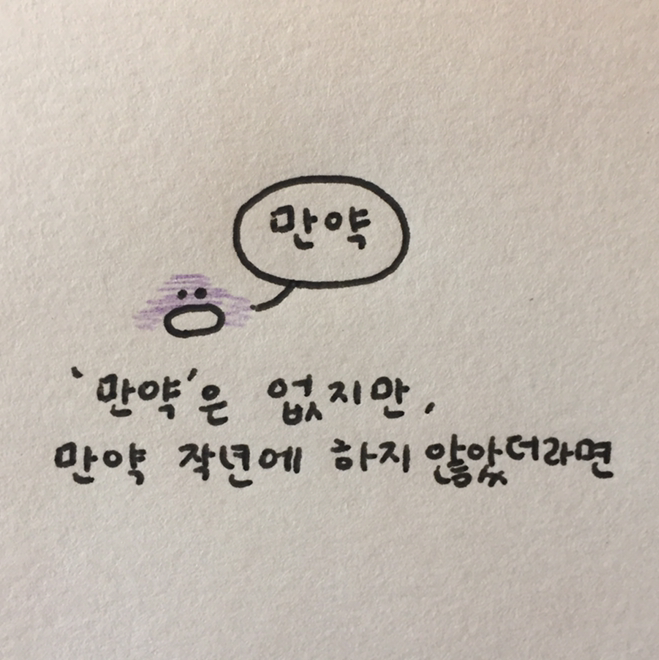 만약
‘만약’은 없지만,
만약 작년에 하지 않았더라면